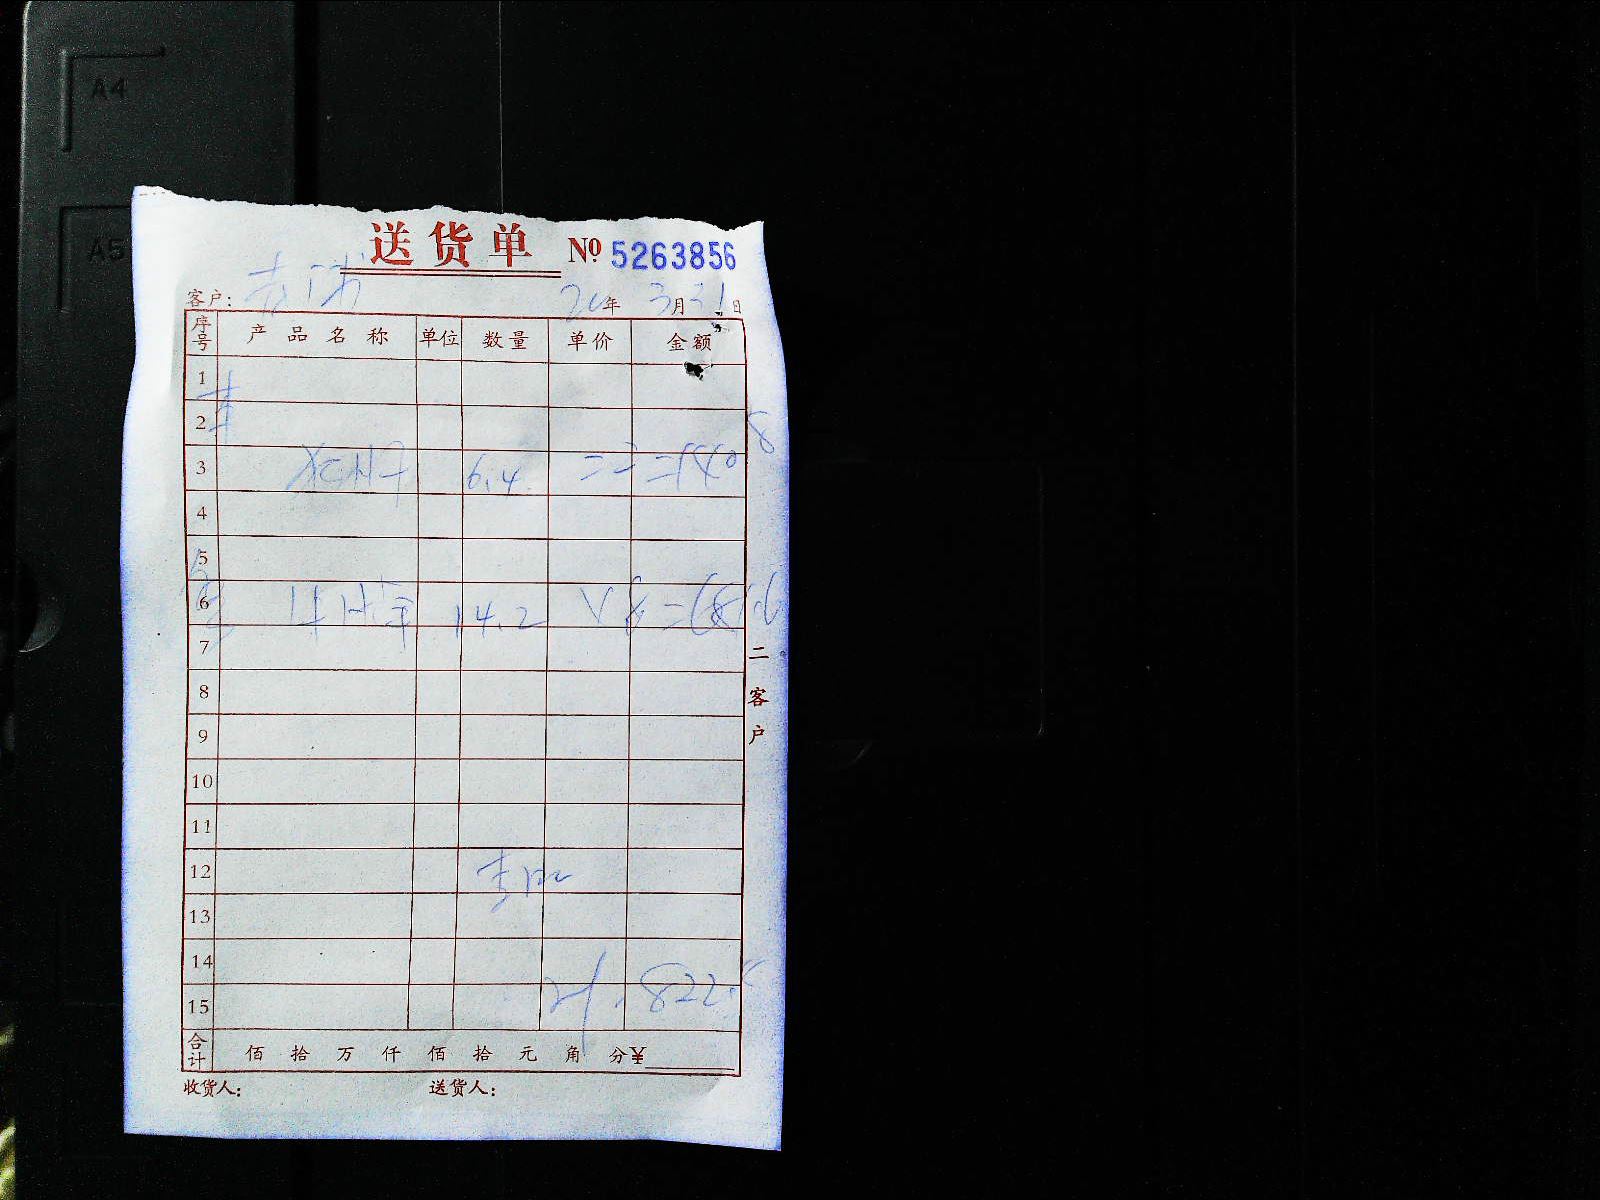 A4
A5
送货单 № 5263856
客户: 20年 3月31日
序号 产品名称 单位 数量 单价 金额
1
2
3 6.4
4
5
6 14.2
7
8
9
10
11
12
13
14
15 822.5
合计 佰 拾 万 仟 佰 拾 元 角 分¥
收货人: 送货人:
二客户